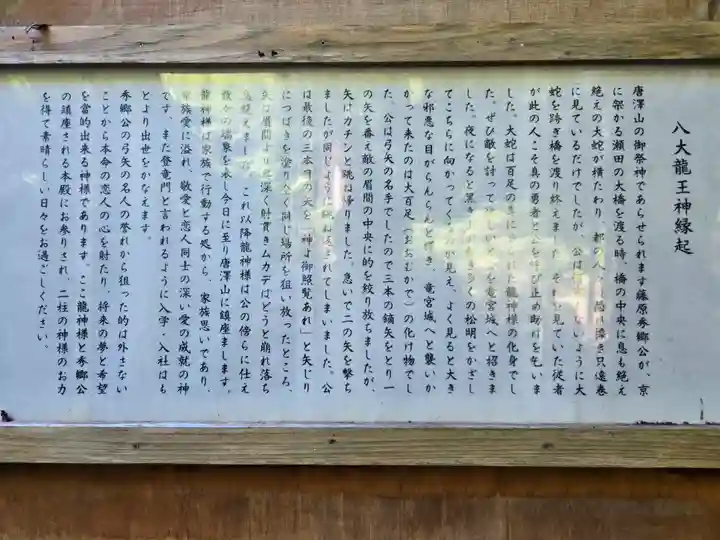 八大龍王神縁起
唐澤山の御祭神であらせられます藤原秀郷公が、京
に架かる瀬田の大橋を渡る時、橋の中央に息も絶え
絶えの大蛇が横たわり、都の人々は 只遠巻
に見ているだけでしたが、公は ように大
蛇を跨ぎ橋を渡り終えました。それを見ていた従者
が此の人こそ真の勇者と公を呼び止め助けを乞いま
した。大蛇は百足の 龍神様の化身でし
た。ぜひ敵を討って欲しいと公を竜宮城へと招きま
した。夜になると黒き 多くの松明をかざし
てこちらに向かってく が見え、よく見ると大き
な邪悪な目がらんらんと輝き、竜宮城へと襲いか
かって来たのは大百足(おおむかで)の化け物でし
た。公は弓矢の名手でしたので三本の鏑矢をとり一
の矢を番え敵の眉間の中央に的を絞り放ちましたが、
矢はカチンと跳ね帰りました。急いで二の矢を撃ち
ましたが同じように跳ね返されてしまいました。公
は最後の三本目の矢を「神よ御照覧あれ」と矢じり
につばきを塗り 同じ場所を狙い放ったところ、
矢は眉間より 深く射貫きムカデはどうと崩れ落ち
息絶えました。これ以降龍神様は公の傍らに仕え
数々の 象を表し今日に至り唐澤山に鎮座します。
龍神様は家族で行動する処から、家族思いであり、
家族愛に溢れ、敬愛と恋人同士の深い愛の成就の神
です。また登竜門と言われるように入学・入社はも
とより出世をかなえます。
秀郷公の弓矢の名人の誉れから狙った的は外さない
ことから本命の恋人の心を射たり、将来の夢と希望
を当的出来る神様であります。ここ龍神様と秀郷公
の鎮座される本殿にお参りされ、二柱の神様のお力
を得て素晴らしい日々をお過ごしください。